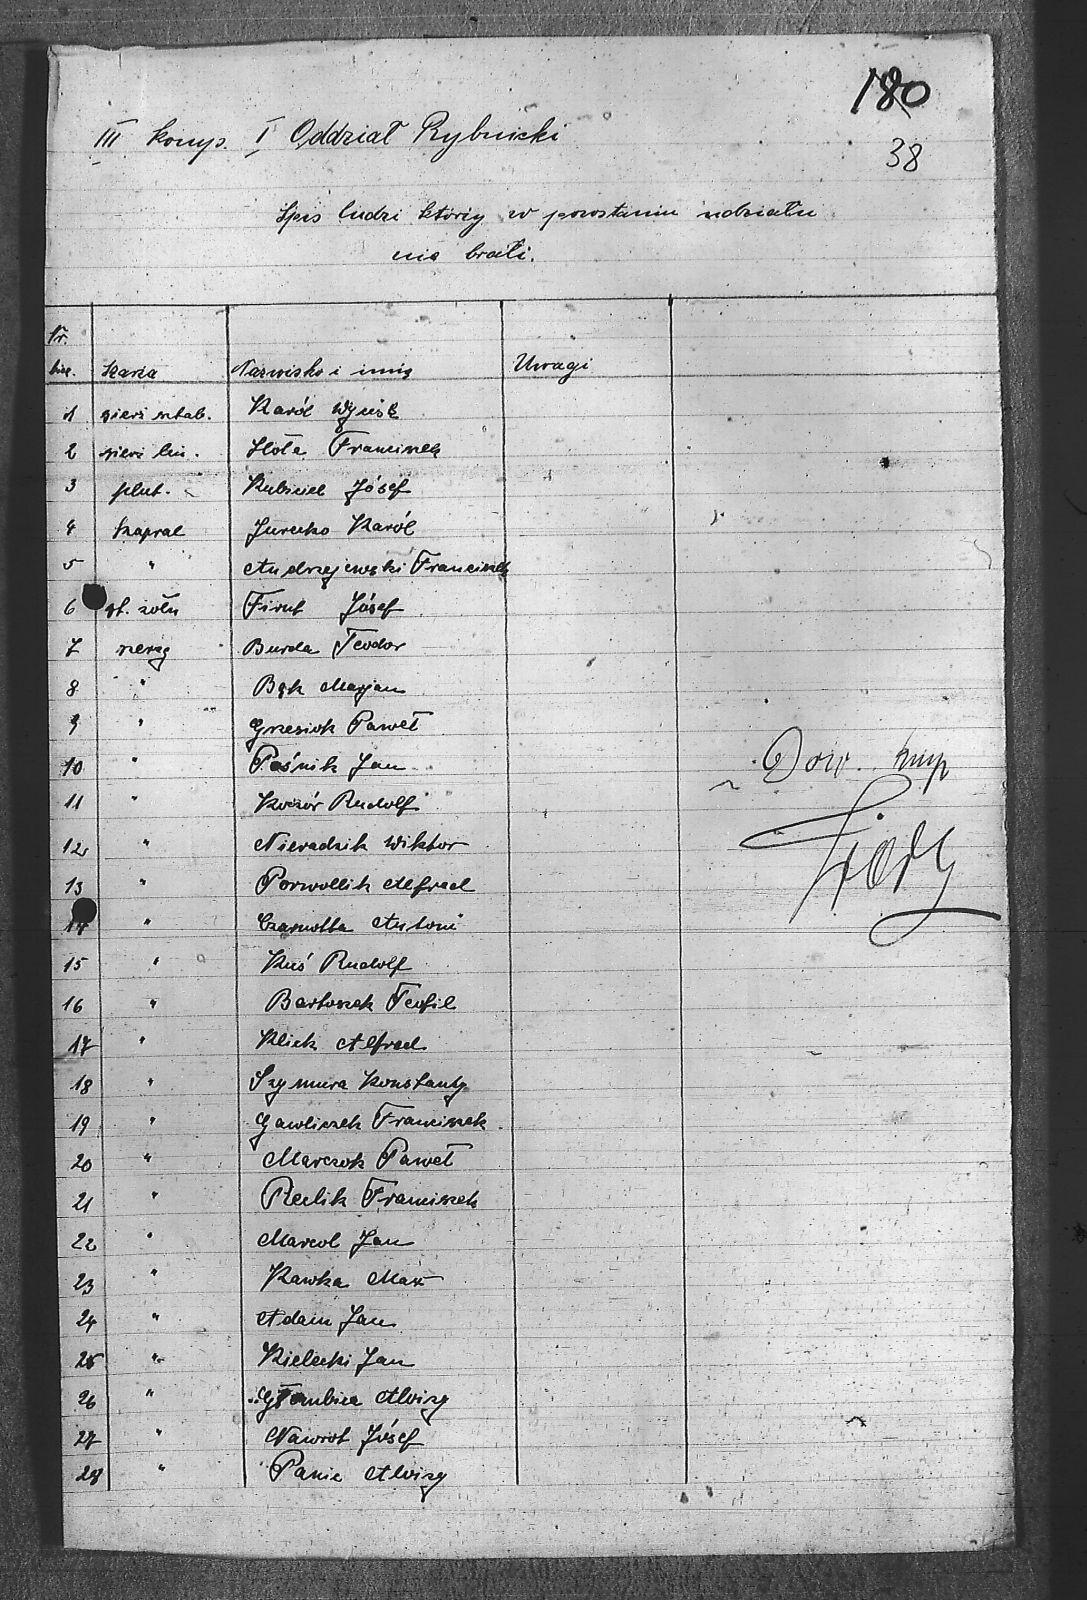 180
38
III komp. I Oddział Rybnicki
Spis ludzi którzy w powstaniu udziału
nie brali.
Nr. Szarża Nazwisko i imię Uwagi
1 sierż sztab. Karól
2 sierż Franciszek
3 plut. Kubiciel Józef
4 kapral Jureczko Karól
5 " Andrzejewski Franciszek
6 st. żołn Firut Józef
7 szereg Burda Teodor
8 " Bąk Marjan
9 " Grzesiok Paweł
10 " Pośnik Jan
11 " Koczór Rudolf
12 " Nieradzik Wiktor
13 " Porwollik Alfred
14 " Czarnotta Antoni
15 " Kuś Rudolf
16 " Bartoszek Teofil
17 " Klich Alfred
18 " Szymura Konstanty
19 " Gawliczek Franciszek
20 " Marczok Paweł
21 " Rudlik Franciszek
22 " Marcol Jan
23 " Kawka Max
24 " Adam Jan
25 " Kielecki Jan
26 " Głombica Alojzy
27 " Nawrot Józef
28 " Panic Alojzy
Dow. kmp